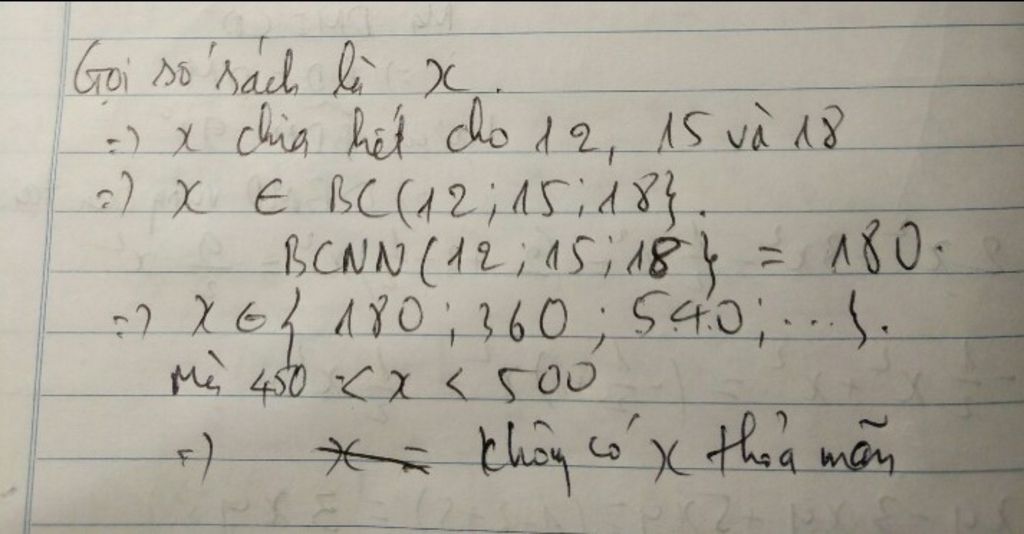 Gọi số sách là x.
=) x chia hết cho 12, 15 và 18
=) x ∈ BC(12;15;18}.
BCNN(12;15;18} = 180.
=) x ∈ { 180; 360; 540; ...}.
Mà 450 < x < 500
=) x = Không có x thỏa mãn